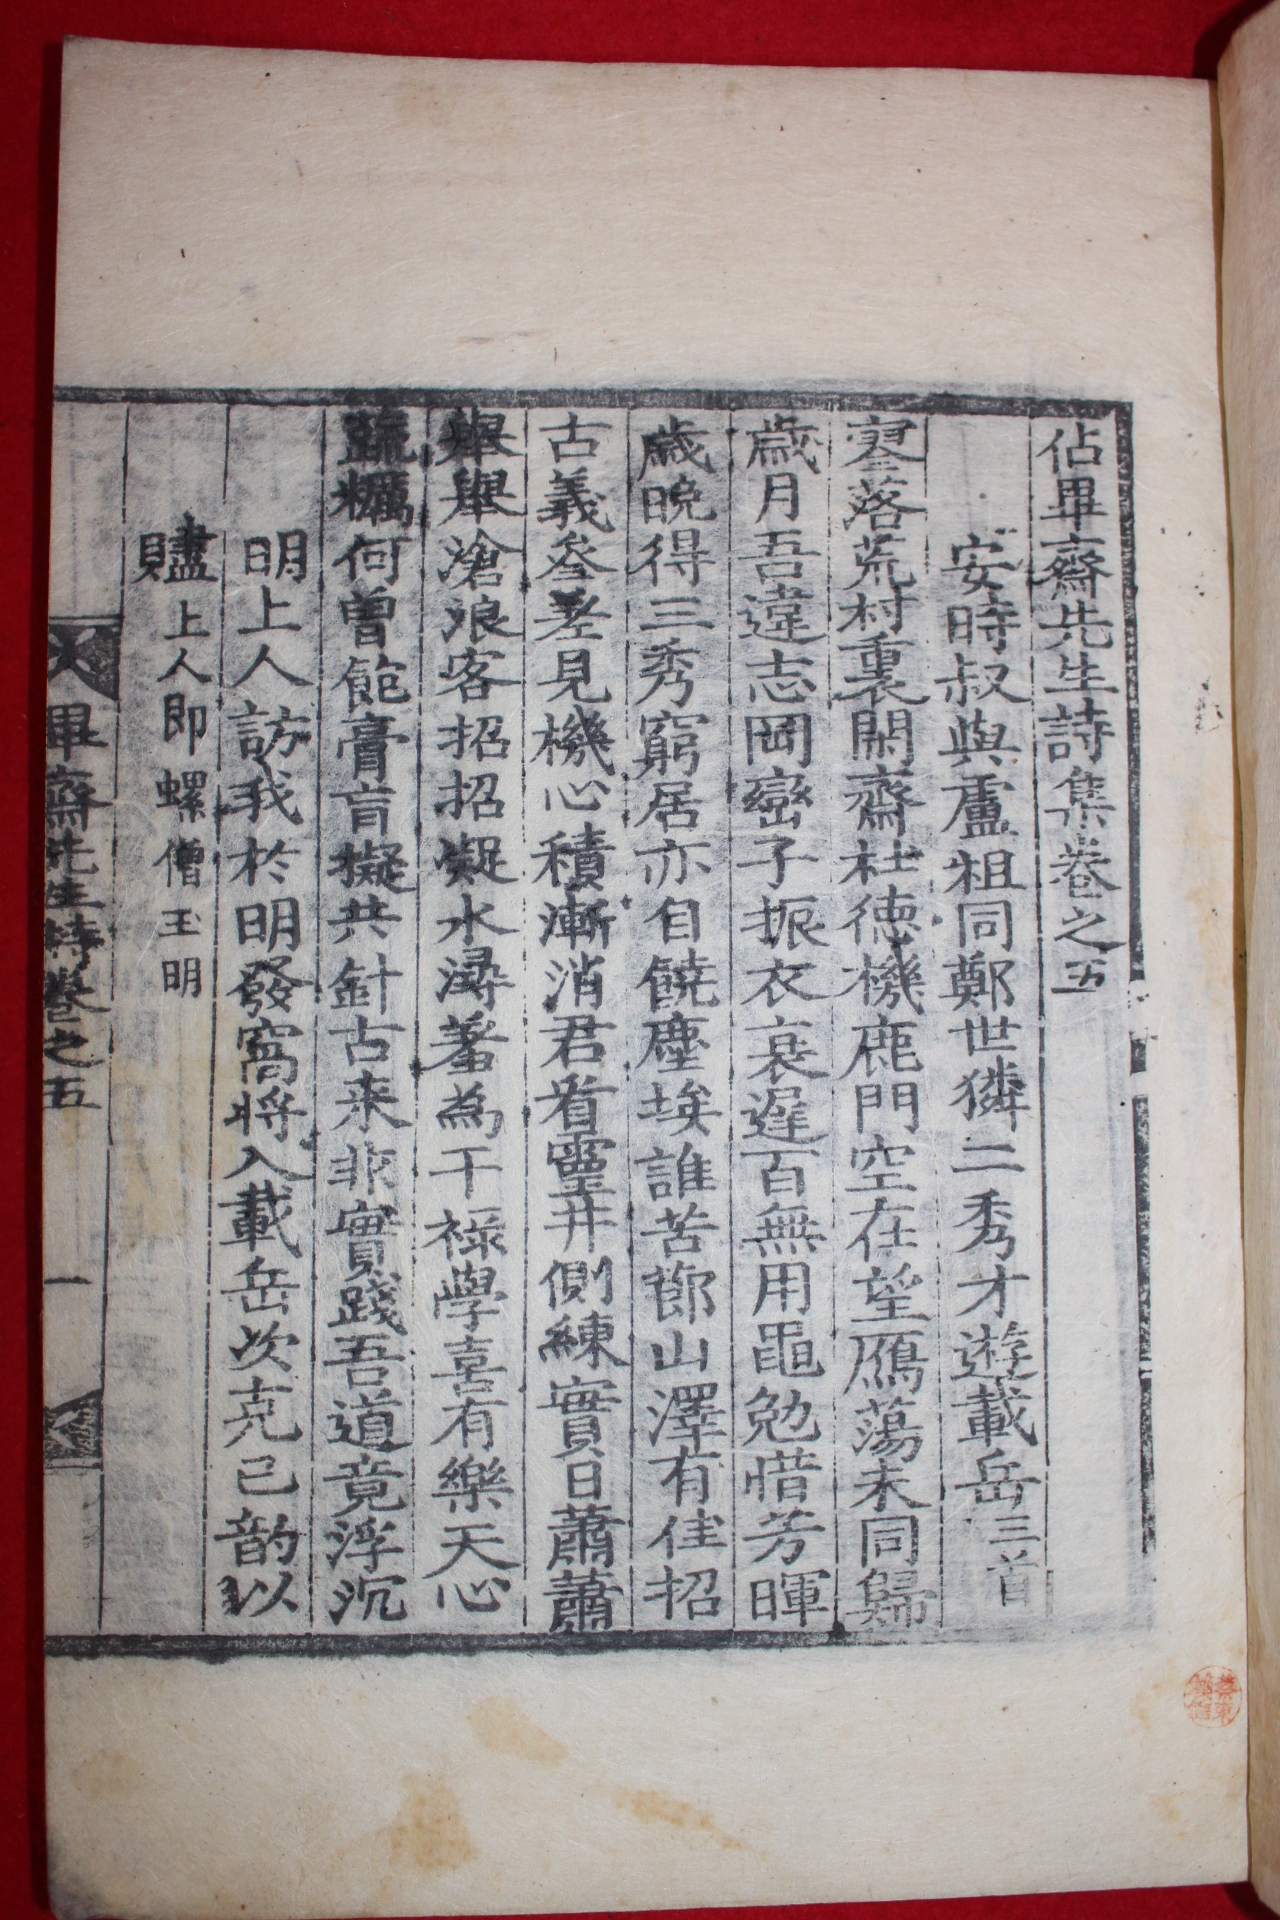 佔畢齋先生詩集卷之五
安時叔與盧粗同鄭世獜二秀才遊載岳三首
寥落荒村裏閑齋杜德機鹿門空在望鴈蕩未同歸
歲月吾違志岡巒子振衣衰遲百無用黽勉惜芳暉
歲晚得三秀窮居亦自饒塵埃誰苦節山澤有佳招
古義叅差見機心積漸消君看靈井側練實日蕭蕭
舉舉滄浪客招招凝水潯羞為干祿學喜有樂天心
蔬糲何曾飽膏肓擬共針古来非實踐吾道竟浮沉
明上人訪我於明發窩將入載岳次克己韵以
贐上人即螺僧玉明
畢齋先生詩卷之五 一